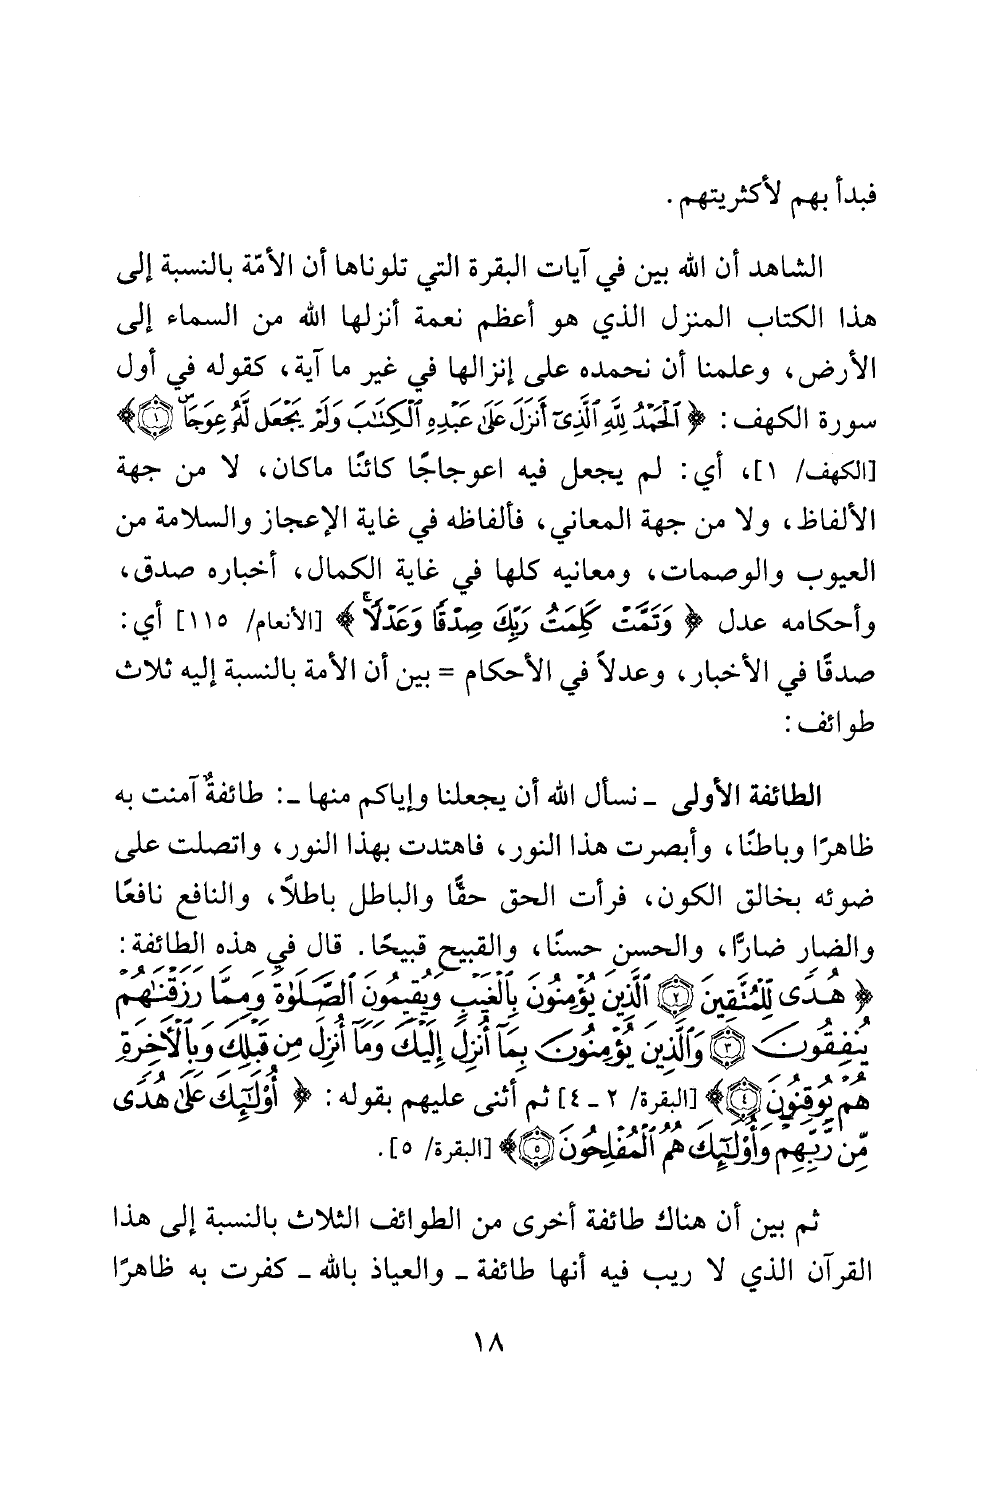 فبدأ بهم لأكثريتهم .
الشاهد أن الله بين في آيات البقرة التي تلوناها أن الأمّة بالنسبة إلى
هذا الكتاب المنزل الذي هو أعظم نعمة أنزلها الله من السماء إلى
الأرض، وعلمنا أن نحمده على إنزالها في غير ما آية، كقوله في أول
سورة الكهف: ﴿ ٱلْحَمْدُ لِلَّهِ ٱلَّذِىٓ أَنزَلَ عَلَىٰ عَبْدِهِ ٱلْكِتَـٰبَ وَلَمْ يَجْعَل لَّهُۥ عِوَجَاۜ ۝١ ﴾
[الكهف/ ١]، أي: لم يجعل فيه اعوجاجًا كائنًا ماكان، لا من جهة
الألفاظ، ولا من جهة المعاني، فألفاظه في غاية الإعجاز والسلامة من
العيوب والوصمات، ومعانيه كلها في غاية الكمال، أخباره صدق،
وأحكامه عدل ﴿ وَتَمَّتْ كَلِمَتُ رَبِّكَ صِدْقًا وَعَدْلًاۚ ﴾ [الأنعام/ ١١٥] أي:
صدقًا في الأخبار، وعدلاً في الأحكام = بين أن الأمة بالنسبة إليه ثلاث
طوائف:
الطائفة الأولى ـ نسأل الله أن يجعلنا وإياكم منها ـ: طائفةٌ آمنت به
ظاهرًا وباطنًا، وأبصرت هذا النور، فاهتدت بهذا النور، واتصلت على
ضوئه بخالق الكون، فرأت الحق حقًّا والباطل باطلاً، والنافع نافعًا
والضار ضارًّا، والحسن حسنًا، والقبيح قبيحًا. قال في هذه الطائفة:
﴿ هُدًى لِّلْمُتَّقِينَ ۝٢ ٱلَّذِينَ يُؤْمِنُونَ بِٱلْغَيْبِ وَيُقِيمُونَ ٱلصَّلَوٰةَ وَمِمَّا رَزَقْنَـٰهُمْ
يُنفِقُونَ ۝٣ وَٱلَّذِينَ يُؤْمِنُونَ بِمَآ أُنزِلَ إِلَيْكَ وَمَآ أُنزِلَ مِن قَبْلِكَ وَبِٱلْـَٔاخِرَةِ
هُمْ يُوقِنُونَ ۝٤ ﴾ [البقرة/ ٢ ـ ٤] ثم أثنى عليهم بقوله: ﴿ أُو۟لَـٰٓئِكَ عَلَىٰ هُدًى
مِّن رَّبِّهِمْ وَأُو۟لَـٰٓئِكَ هُمُ ٱلْمُفْلِحُونَ ۝٥ ﴾ [البقرة/ ٥].
ثم بين أن هناك طائفة أخرى من الطوائف الثلاث بالنسبة إلى هذا
القرآن الذي لا ريب فيه أنها طائفة ـ والعياذ بالله ـ كفرت به ظاهرًا
١٨